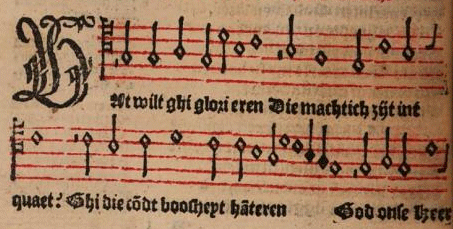 WAt wilt ghi glozi eren Die machtich zijt int
quaet? Ghi die cōdt boosheyt hāteren God onse heer